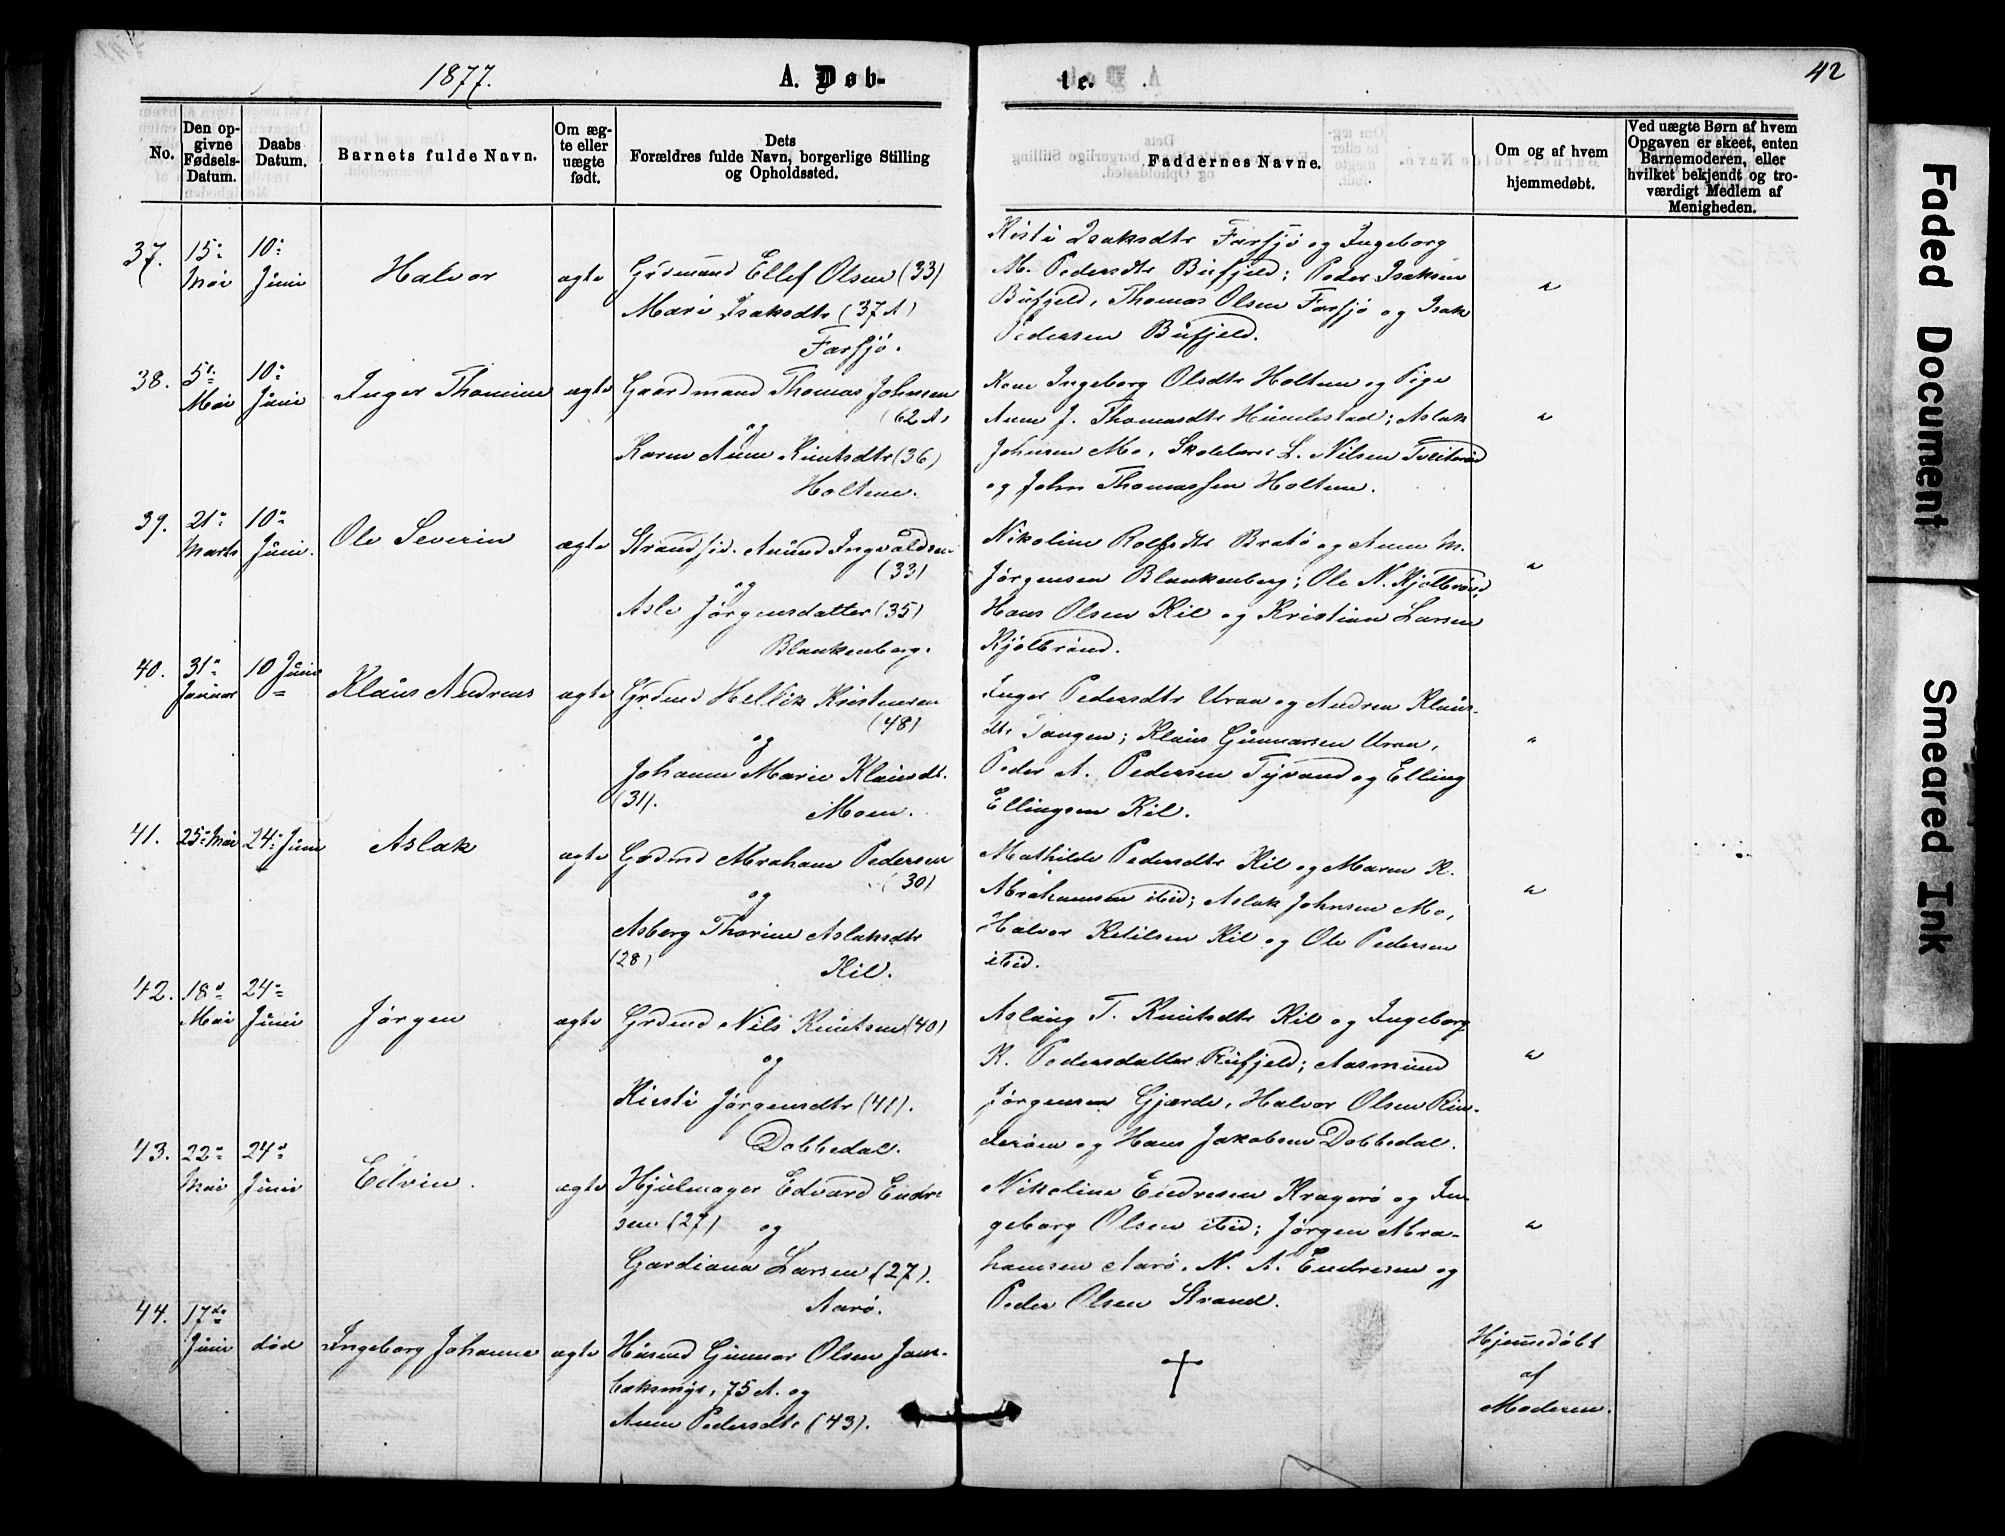 1877.
A. Døb-
te.
42
No.
Den op-
givne
Fødsels-
Datum.
Daabs
Datum.
Barnets fulde Navn.
Om æg-
te eller
uægte
født.
Dets
Forældres fulde Navn, borgerlige Stilling
og Opholdssted.
Faddernes Navne.
Om og af hvem
hjemmedøbt.
Ved uægte Børn af hvem
Opgaven er skeet, enten
Barnemoderen, eller
hvilket bekjendt og tro-
værdigt Medlem af
Menigheden.
37.
15
Mai
10
Juni
Halvor
ægte
Gdmund Ellef Olsen (33)
Mari Isaksdtr (37 A)
Farsjø.
Kisti Isaksdtr Farsjø og Ingeborg
M. Pedersdtr Bufjeld; Peder Isaksen
Bufjeld, Thomas Olsen Farsjø og Isak
Pedersen Bufjeld.
"
38.
5
Mai
10
Juni
Inger Thomine
ægte
Gaardmand Thomas Johnsen
(62 A)
og
Karen Anne Knutsdtr (36)
Holtene.
Kone Ingeborg Olsdtr Holtene og Pige
Anne J. Thomasdtr Humlestad; Aslak
Johnsen Mo, Skolelærer L. Nilsen
og John Thomassen Holtene.
"
39.
21
Marts
10
Juni.
Ole Severin
ægte
Strandsid. Amund Ingvaldsen
(33)
og
Asle Jørgensdatter (35)
Blankenberg.
Nikoline Rolfsdtr Bratø og Anne M.
Jørgensen Blankenberg; Ole N. Kjølbrønd
Hans Olsen Kil og Kristian Larsen
Kjølbrønd.
"
40.
31
Januar
10 Juni
Klaus Andreas
ægte
Grdmd Hellik Kristensen
(48)
og
Johanne Marie Klausdt.
(31).
Moen.
Inger Pedersdtr Uraa og Andrea Klaus-
dtr Tangen; Klaus Gunnarsen Uraa,
Peder A. Pedersen Tyvand og Elling
Ellingsen Kil.
"
41.
25 Mai
24 Juni
Aslak
ægte
Grdmd Abraham Pedersen
(30)
og
Asberg Thorine Aslaksdtr
(28)
Kil.
Mathilde Pedersdtr Kil og Maren K.
Abrahamsen ibid; Aslak Johnsen Mo,
Halvor Ketilsen Kil og Ole Pedersen
ibid.
"
42.
18
Mai
24
Juni
Jørgen
ægte
Grdmd Nils Knutsen (40)
og
Kirsti Jørgensdtr (41).
Dobbedal.
Aslaug T. Knutsdtr Kil og Ingeborg
K. Pedersdatter Rufjeld; Aasmund
Jørgensen Gjærde, Halvor Olsen Rin-
og Hans Jakobsen Dobbedal.
"
43.
22
Mai
24
Juni
Edvin.
ægte
Hjulmager Edvard Endre-
sen (27) og
Gardiana Larsen (27).
Aarø.
Nikoline Endresen Kragerø og In-
geborg Olsen ibid; Jørgen Abra-
hamsen Aarø, N. A. Endresen og
Peder Olsen Strand.
"
44.
17de
Juni
død
Ingeborg Johanne
ægte
Husmd Gunnar Olsen Jam-
bæksmyr, 75 A. og
Anne Pedersdtr (43).
Hjemmedøbt
af
Moderen.
Faded Document
Smeared Ink